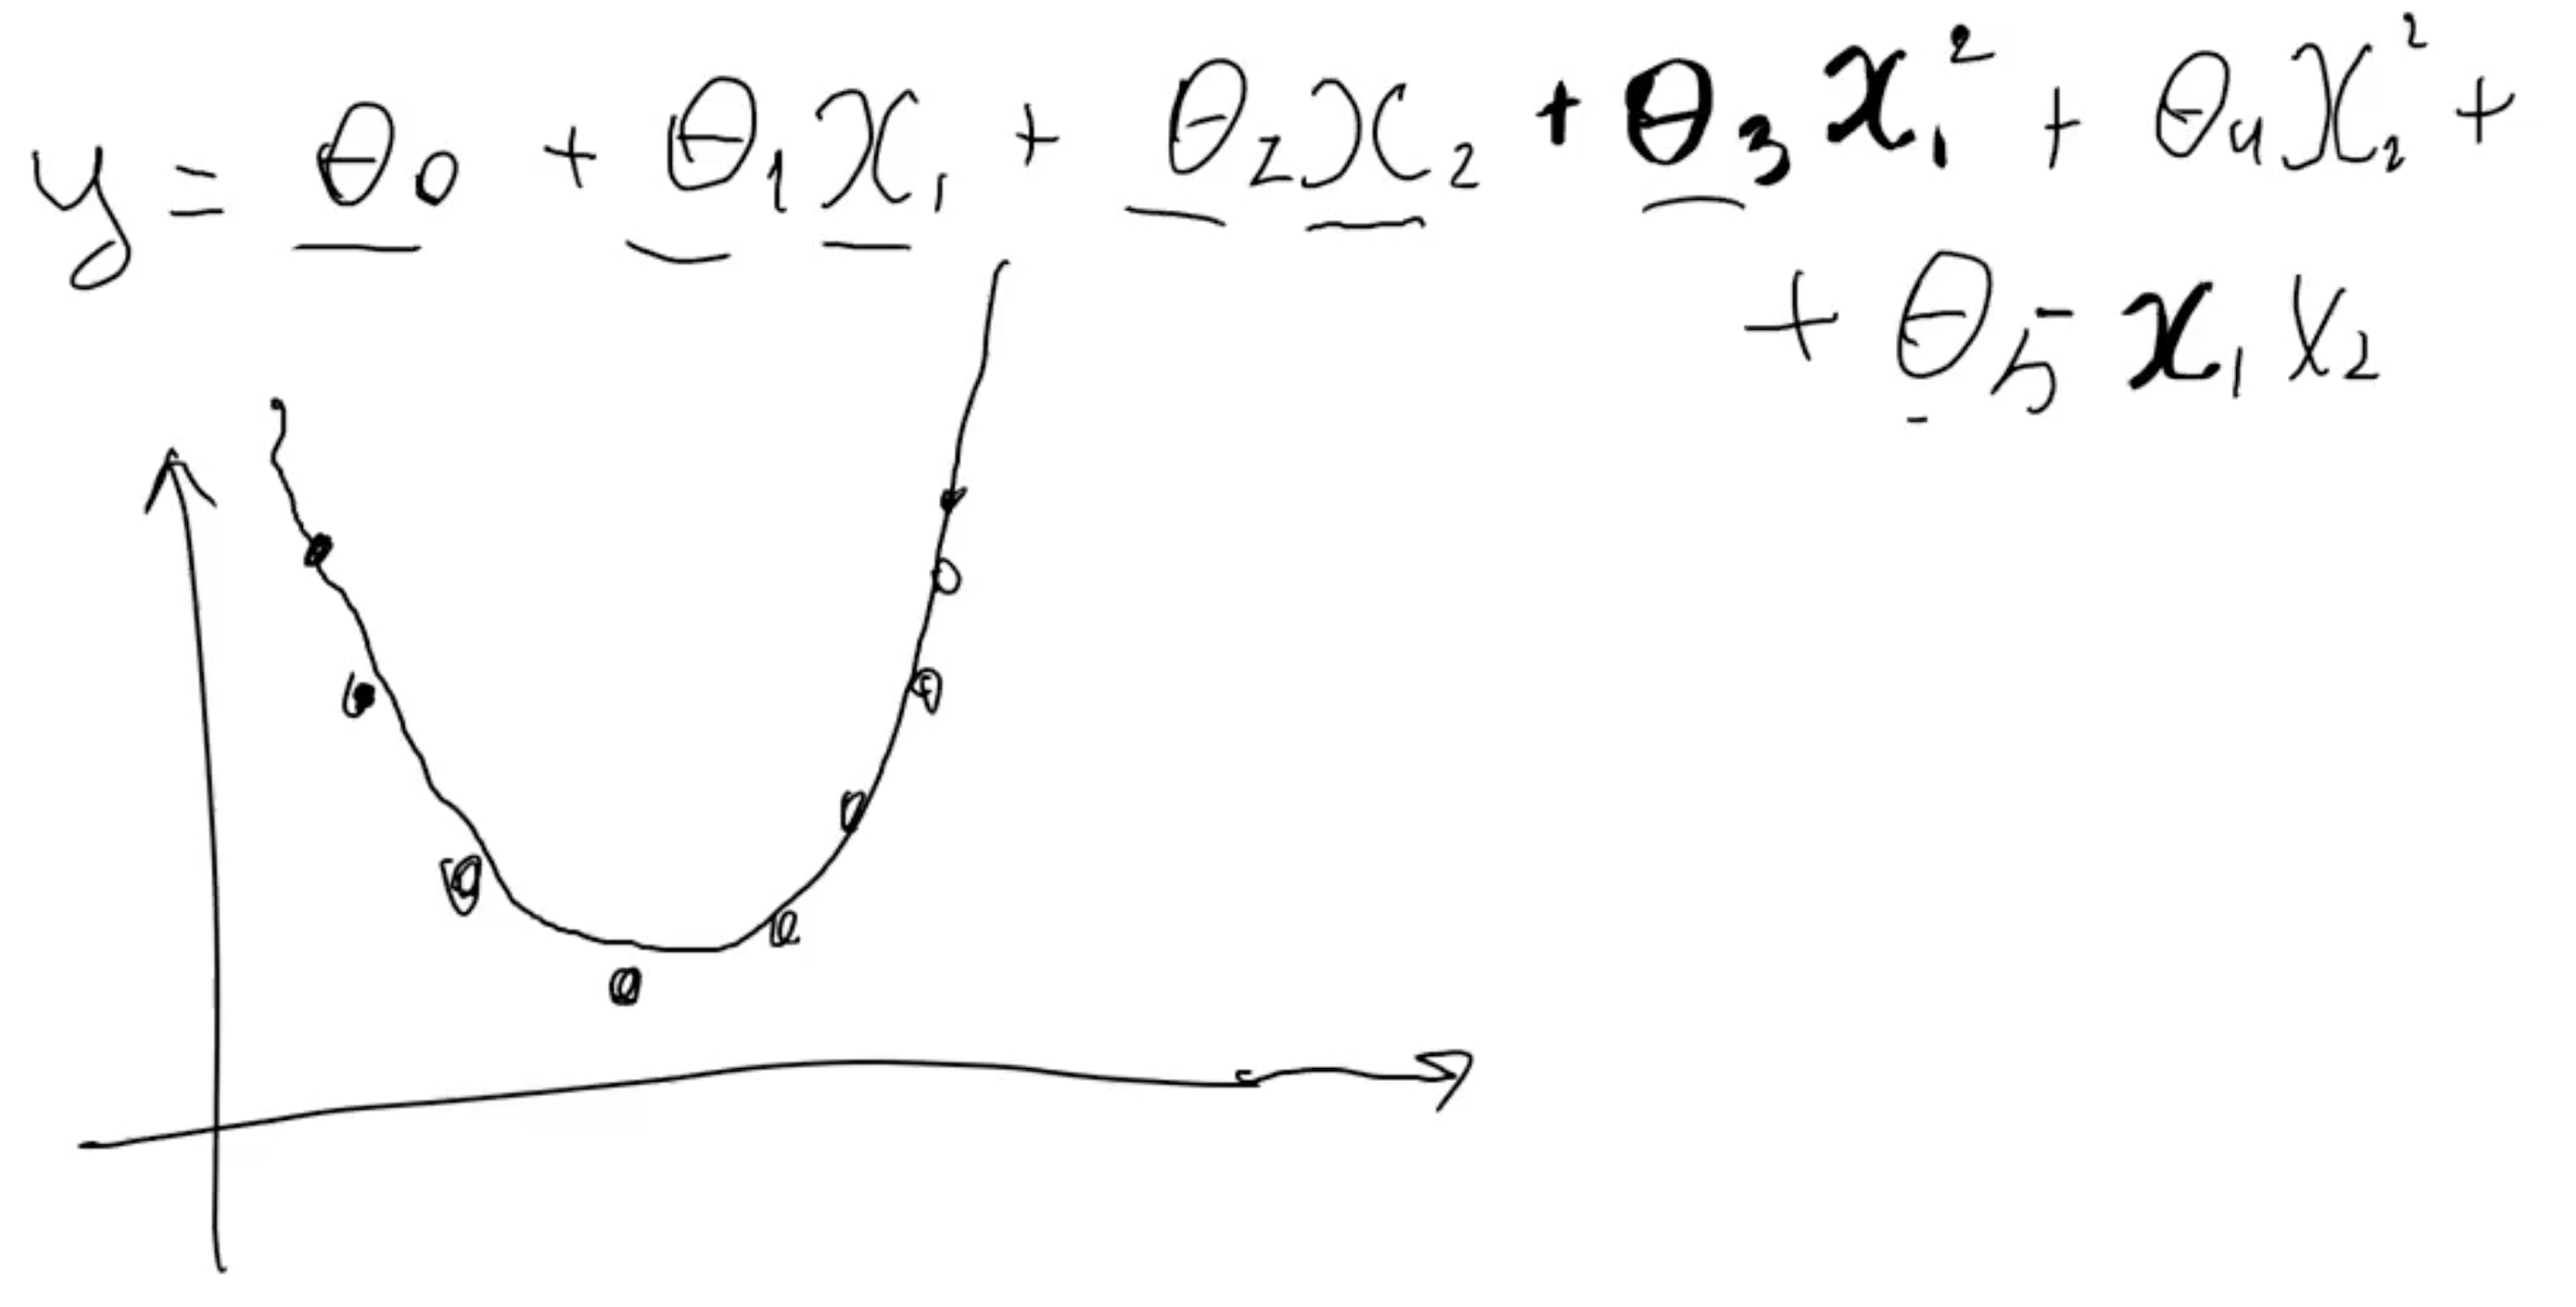 y = θ₀ + θ₁x₁ + θ₂x₂ + θ₃x₁² + θ₄x₂² +
+ θ₅x₁x₂